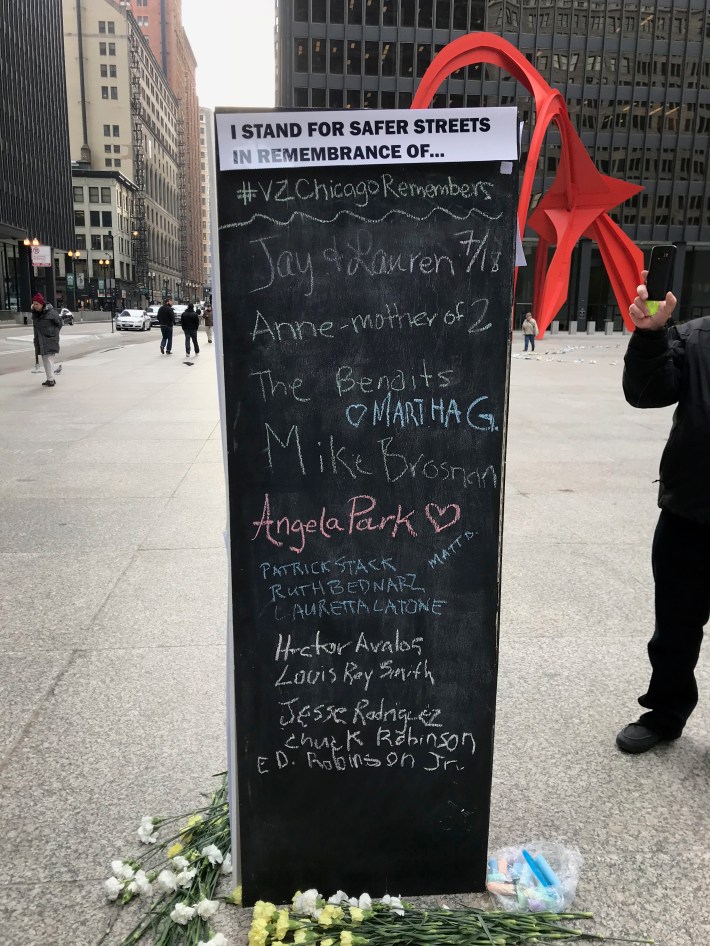 I STAND FOR SAFER STREETS
IN REMEMBRANCE OF...
#VZChicagoRemembers
Jay & Lauren 7/18
Anne-mother of 2
The Bendits
♡ MARTHA G.
Mike Brosnan
Angela Park ♡
PATRICK STACK
MATT D.
RUTH BEDNARZ
LAURETTA LATONE
Hector Avalos
Louis Ray Smith
Jesse Rodriguez
Chuck Robinson
ED. Robinson Jr.